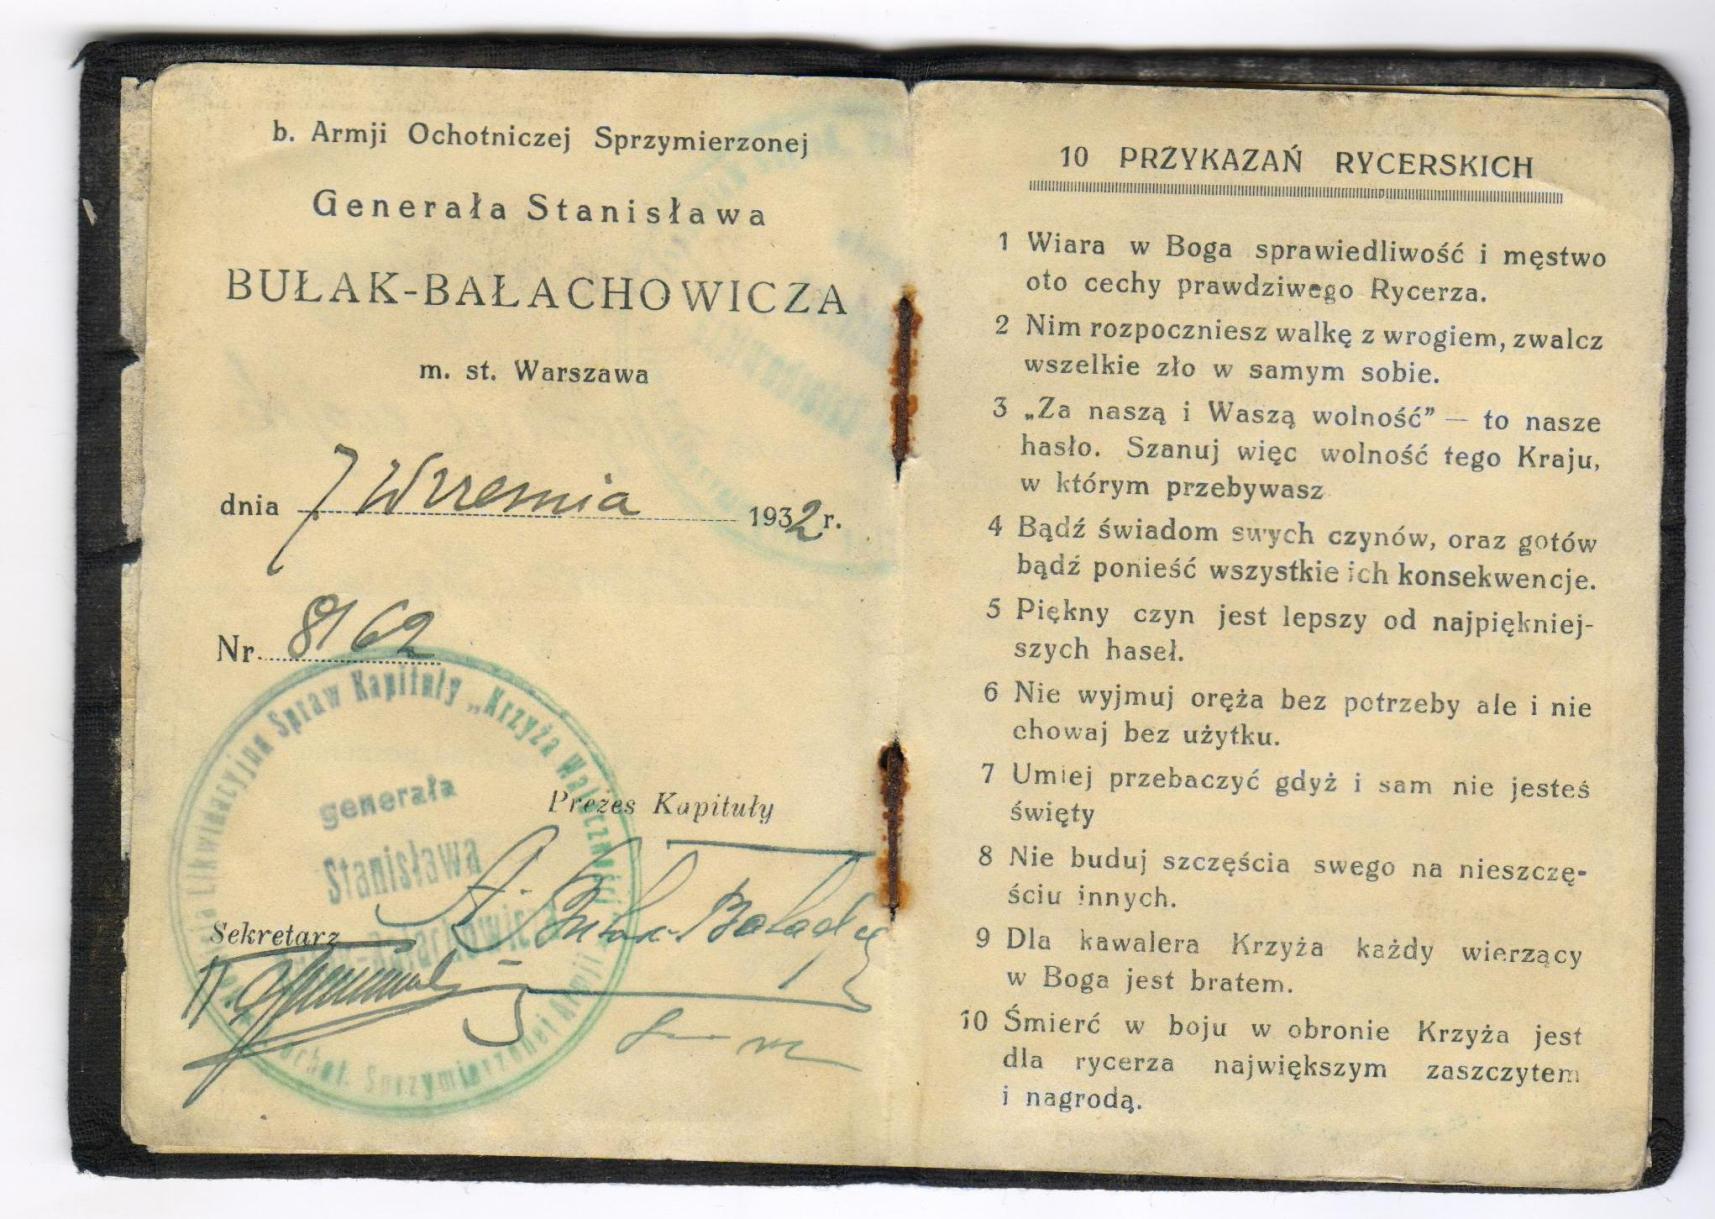 b. Armji Ochotniczej Sprzymierzonej
Generała Stanisława
BUŁAK-BAŁACHOWICZA
m. st. Warszawa
dnia 7 Wrzesnia 1932 r.
Nr. 8/62
Likwidacyjna Spraw Kapituły „Krzyża Waleczności Armji Ochot. Sprzymierzonej
generała
Stanisława
Prezes Kapituły
Sekretarz
10 PRZYKAZAŃ RYCERSKICH
1 Wiara w Boga sprawiedliwość i męstwo
oto cechy prawdziwego Rycerza.
2 Nim rozpoczniesz walkę z wrogiem, zwalcz
wszelkie zło w samym sobie.
3 „Za naszą i Waszą wolność” — to nasze
hasło. Szanuj więc wolność tego Kraju,
w którym przebywasz
4 Bądź świadom swych czynów, oraz gotów
bądź ponieść wszystkie ich konsekwencje.
5 Piękny czyn jest lepszy od najpiękniej-
szych haseł.
6 Nie wyjmuj oręża bez potrzeby ale i nie
chowaj bez użytku.
7 Umiej przebaczyć gdyż i sam nie jesteś
święty
8 Nie buduj szczęścia swego na nieszczę-
ściu innych.
9 Dla kawalera Krzyża każdy wierzący
w Boga jest bratem.
10 Śmierć w boju w obronie Krzyża jest
dla rycerza największym zaszczytem
i nagrodą.